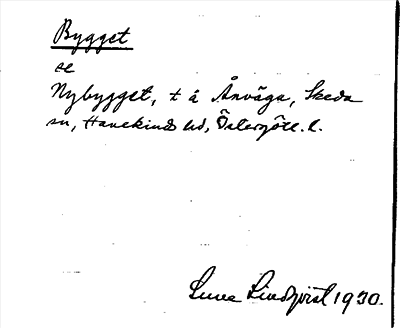 Bygget
se
Nybygget, t å Ånväga, Skeda
sn, Hanekinds hd, Östergötl. l.
Sune Lindqvist 1930.